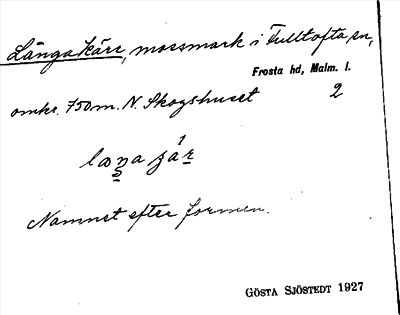 Långa kärr, mossmark i Fulltofta sn,
Frosta hd, Malm. l.
omkr. 750 m. N. Skogshuset 2
Namnet efter formen.
GÖSTA SJÖSTEDT 1927